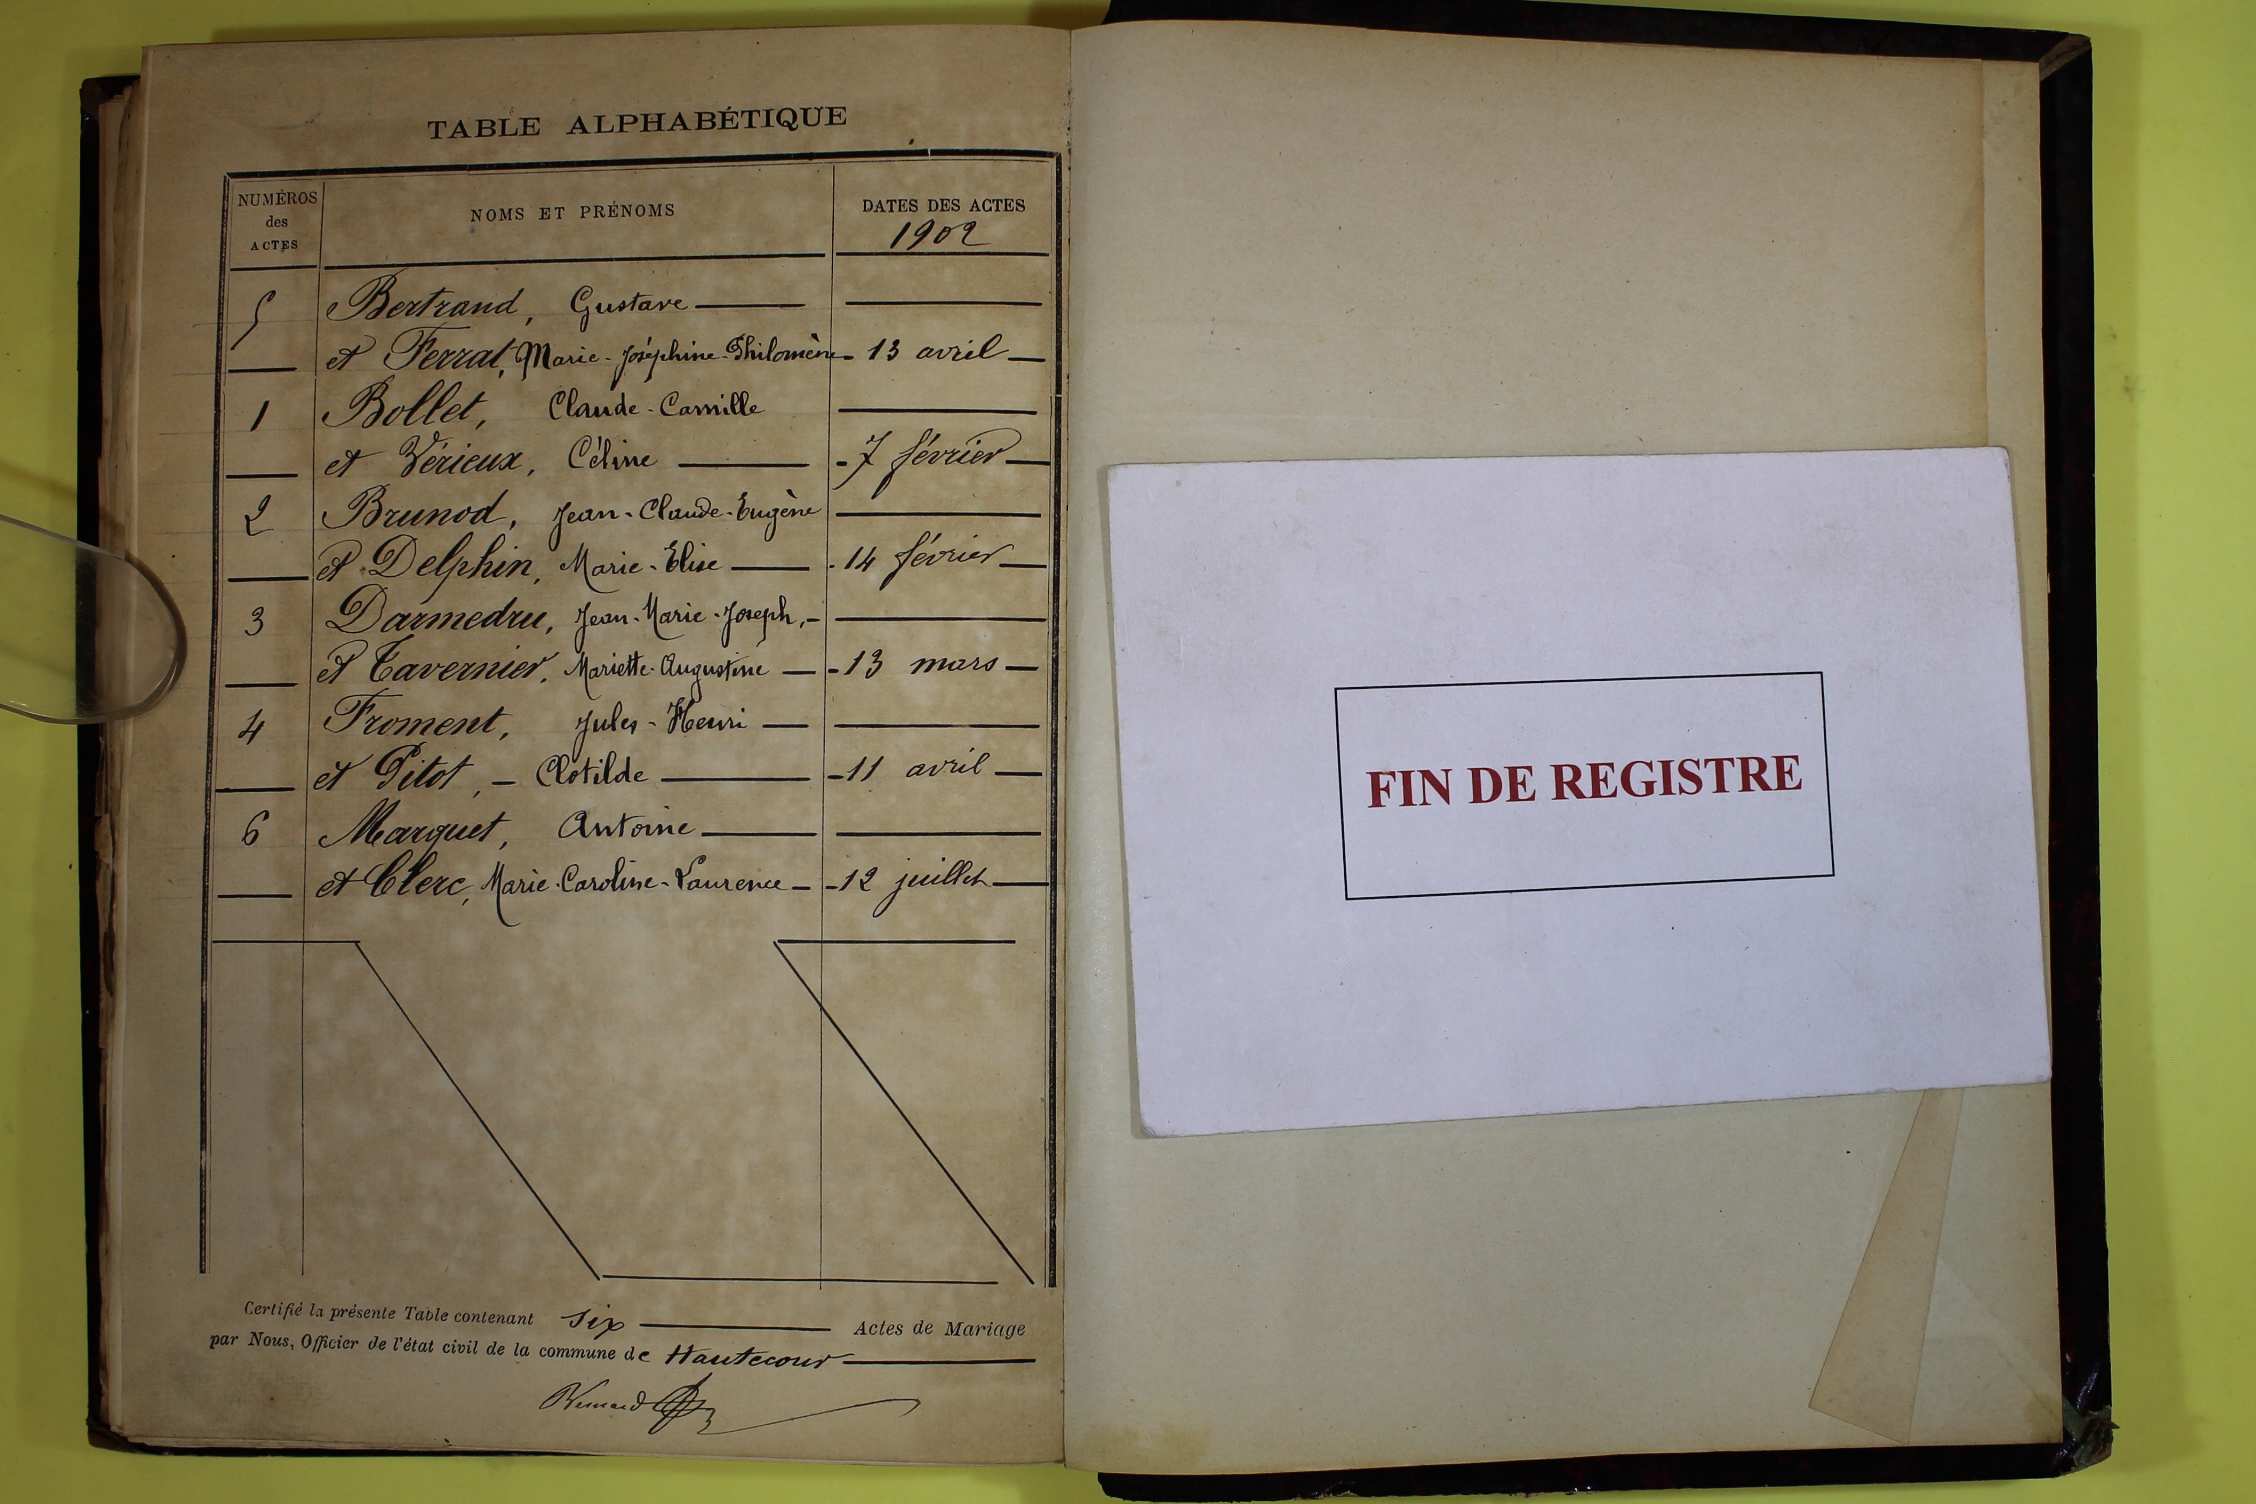 TABLE ALPHABÉTIQUE
NUMÉROS des ACTES
NOMS ET PRÉNOMS
DATES DES ACTES
1902
5 Bertrand, Gustave
et Ferrat, Marie-Joséphine-Philomène 13 avril
1 Bollet, Claude-Camille
et Vérieux, Céline 7 février
2 Brunod, Jean-Claude-Eugène
et Delphin, Marie-Elise 14 février
3 Darmedru, Jean-Marie-Joseph,
et Tavernier, Mariette-Augustine 13 mars
4 Froment, Jules-Henri
et Pitot, Clotilde 11 avril
6 Marquet, Antoine
et Clerc, Marie-Caroline-Laurence 12 juillet
Certifié la présente Table contenant six Actes de Mariage
par Nous, Officier de l'état civil de la commune de Hautecour
FIN DE REGISTRE